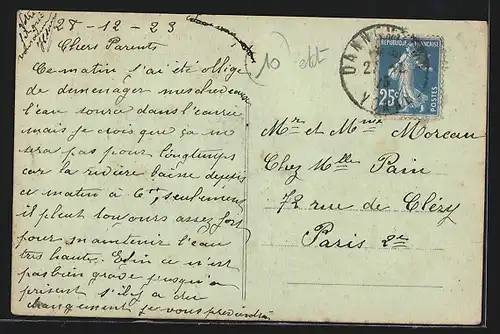 28-12-23
Chers Parents
Ce matin j'ai été obligé
de déménager mes chevaux
l'eau sourd dans l'écurie
mais je crois que ça ne
sera pas pour longtemps
car la rivière baisse depuis
ce matin à 6h, seulement
il pleut toujours assez fort
pour maintenir l'eau
très haute. Enfin ce n'est
pas bien grave jusqu'à
présent s'il y a du
changement je vous préviendrai
10
REPUBLIQUE FRANÇAISE
25c
POSTES
Mr et Mme Moreau
Chez Mlle Pain
72 rue de Cléry
Paris 2e